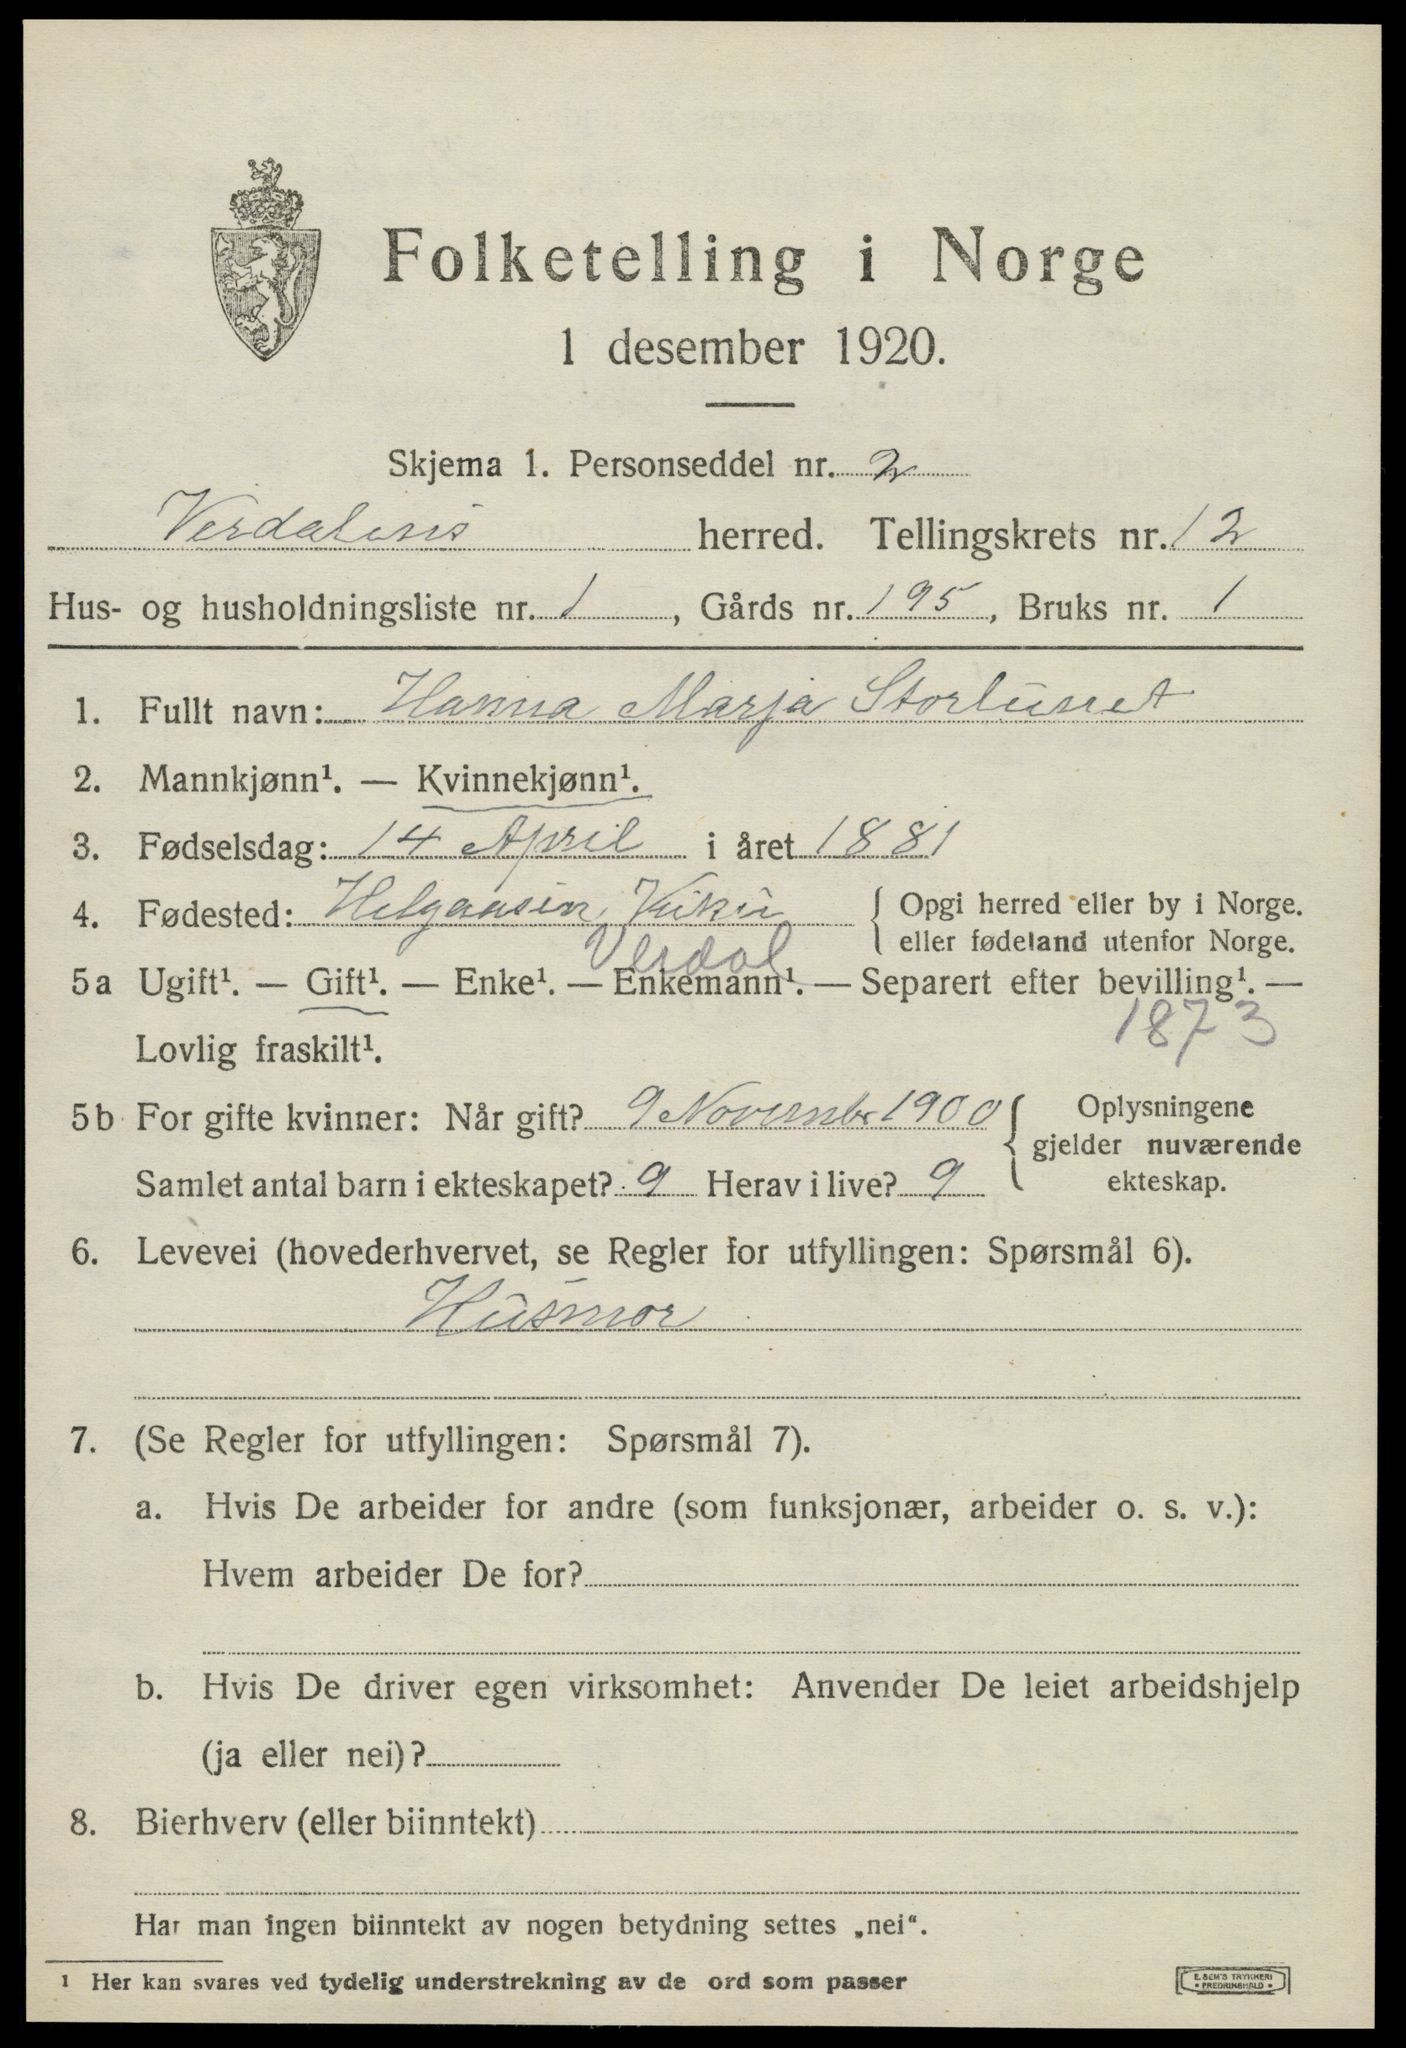 Folketelling i Norge
1 desember 1920.
Skjema 1. Personseddel nr. 2
Verdalens herred. Tellingskrets nr. 12
Hus- og husholdningsliste nr. 1, Gårds nr. 195, Bruks nr. 1
1. Fullt navn: Hanna Marja Storlunet
2. Mannkjønn¹. — Kvinnekjønn¹.
3. Fødselsdag: 14 April i året 1881
4. Fødested: Helgaasen, { Opgi herred eller by i Norge.
eller fødeland utenfor Norge.
Verdal
5a Ugift¹. — Gift¹. — Enke¹. — Enkemann¹. — Separert efter bevilling¹. —
1873
Lovlig fraskilt¹.
5b For gifte kvinner: Når gift? 9 Novembr 1900 { Oplysningene
gjelder nuværende
Samlet antal barn i ekteskapet? 9 Herav i live? 9 ekteskap.
6. Levevei (hovederhvervet, se Regler for utfyllingen: Spørsmål 6).
Husmor
7. (Se Regler for utfyllingen: Spørsmål 7).
a. Hvis De arbeider for andre (som funksjonær, arbeider o. s. v.):
Hvem arbeider De for?
b. Hvis De driver egen virksomhet: Anvender De leiet arbeidshjelp
(ja eller nei)?
8. Bierhverv (eller biinntekt)
Har man ingen biinntekt av nogen betydning settes „nei“.
¹ Her kan svares ved tydelig understrekning av de ord som passer
E. SEM'S TRYKKERI
• FREDRIKSHALD •